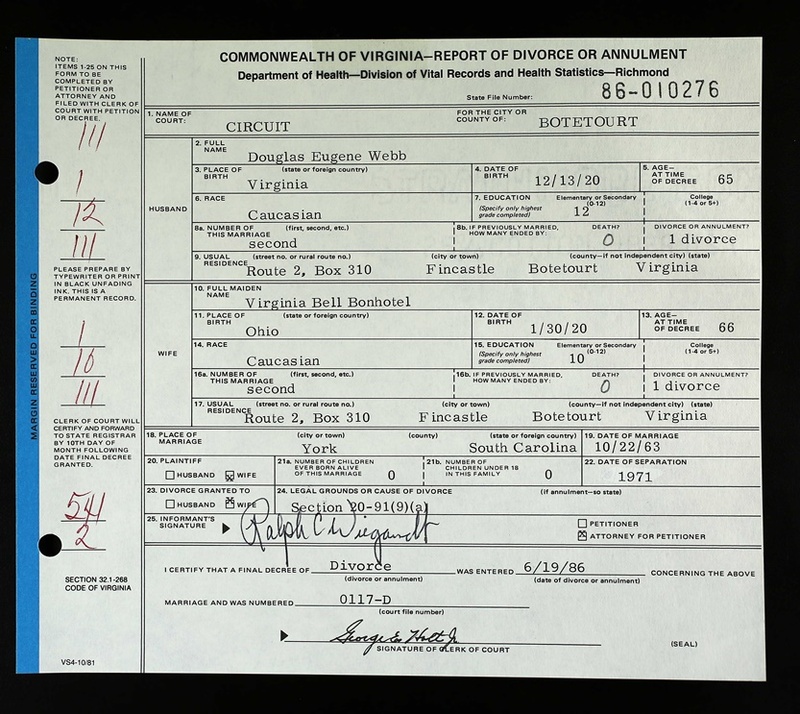 COMMONWEALTH OF VIRGINIA—REPORT OF DIVORCE OR ANNULMENT
Department of Health—Division of Vital Records and Health Statistics—Richmond
State File Number: 86-010276
NOTE:
ITEMS 1-25 ON THIS
FORM TO BE
COMPLETED BY
PETITIONER OR
ATTORNEY AND
FILED WITH CLERK OF
COURT WITH PETITION
OR DECREE.
111
1
12
111
PLEASE PREPARE BY
TYPEWRITER OR PRINT
IN BLACK UNFADING
INK. THIS IS A
PERMANENT RECORD.
1
10
111
CLERK OF COURT WILL
CERTIFY AND FORWARD
TO STATE REGISTRAR
BY 10TH DAY OF
MONTH FOLLOWING
DATE FINAL DECREE
GRANTED.
541
2
SECTION 32.1-268
CODE OF VIRGINIA
VS4-10/81
MARGIN RESERVED FOR BINDING
1. NAME OF COURT: CIRCUIT FOR THE CITY OR COUNTY OF: BOTETOURT
HUSBAND
2. FULL NAME Douglas Eugene Webb
3. PLACE OF BIRTH (state or foreign country) Virginia 4. DATE OF BIRTH 12/13/20 5. AGE— AT TIME OF DECREE 65
6. RACE Caucasian 7. EDUCATION (Specify only highest grade completed) Elementary or Secondary (0-12) 12 College (1-4 or 5+)
8a. NUMBER OF THIS MARRIAGE (first, second, etc.) second 8b. IF PREVIOUSLY MARRIED, HOW MANY ENDED BY: DEATH? 0 DIVORCE OR ANNULMENT? 1 divorce
9. USUAL RESIDENCE (street no. or rural route no.) (city or town) (county—if not independent city) (state)
Route 2, Box 310 Fincastle Botetourt Virginia
WIFE
10. FULL MAIDEN NAME Virginia Bell Bonhotel
11. PLACE OF BIRTH (state or foreign country) Ohio 12. DATE OF BIRTH 1/30/20 13. AGE— AT TIME OF DECREE 66
14. RACE Caucasian 15. EDUCATION (Specify only highest grade completed) Elementary or Secondary (0-12) 10 College (1-4 or 5+)
16a. NUMBER OF THIS MARRIAGE (first, second, etc.) second 16b. IF PREVIOUSLY MARRIED, HOW MANY ENDED BY: DEATH? 0 DIVORCE OR ANNULMENT? 1 divorce
17. USUAL RESIDENCE (street no. or rural route no.) (city or town) (county—if not independent city) (state)
Route 2, Box 310 Fincastle Botetourt Virginia
18. PLACE OF MARRIAGE (city or town) (county) York (state or foreign country) South Carolina 19. DATE OF MARRIAGE 10/22/63
20. PLAINTIFF HUSBAND WIFE 21a. NUMBER OF CHILDREN EVER BORN ALIVE OF THIS MARRIAGE 0 21b. NUMBER OF CHILDREN UNDER 18 IN THIS FAMILY 0 22. DATE OF SEPARATION 1971
23. DIVORCE GRANTED TO HUSBAND WIFE 24. LEGAL GROUNDS OR CAUSE OF DIVORCE (if annulment—so state) Section 20-91(9)(a)
25. INFORMANT'S SIGNATURE Ralph C Wiegandt PETITIONER
ATTORNEY FOR PETITIONER
I CERTIFY THAT A FINAL DECREE OF Divorce WAS ENTERED 6/19/86 CONCERNING THE ABOVE
(divorce or annulment) (date of divorce or annulment)
MARRIAGE AND WAS NUMBERED 0117-D
(court file number)
George E. Holt Jr
SIGNATURE OF CLERK OF COURT
(SEAL)